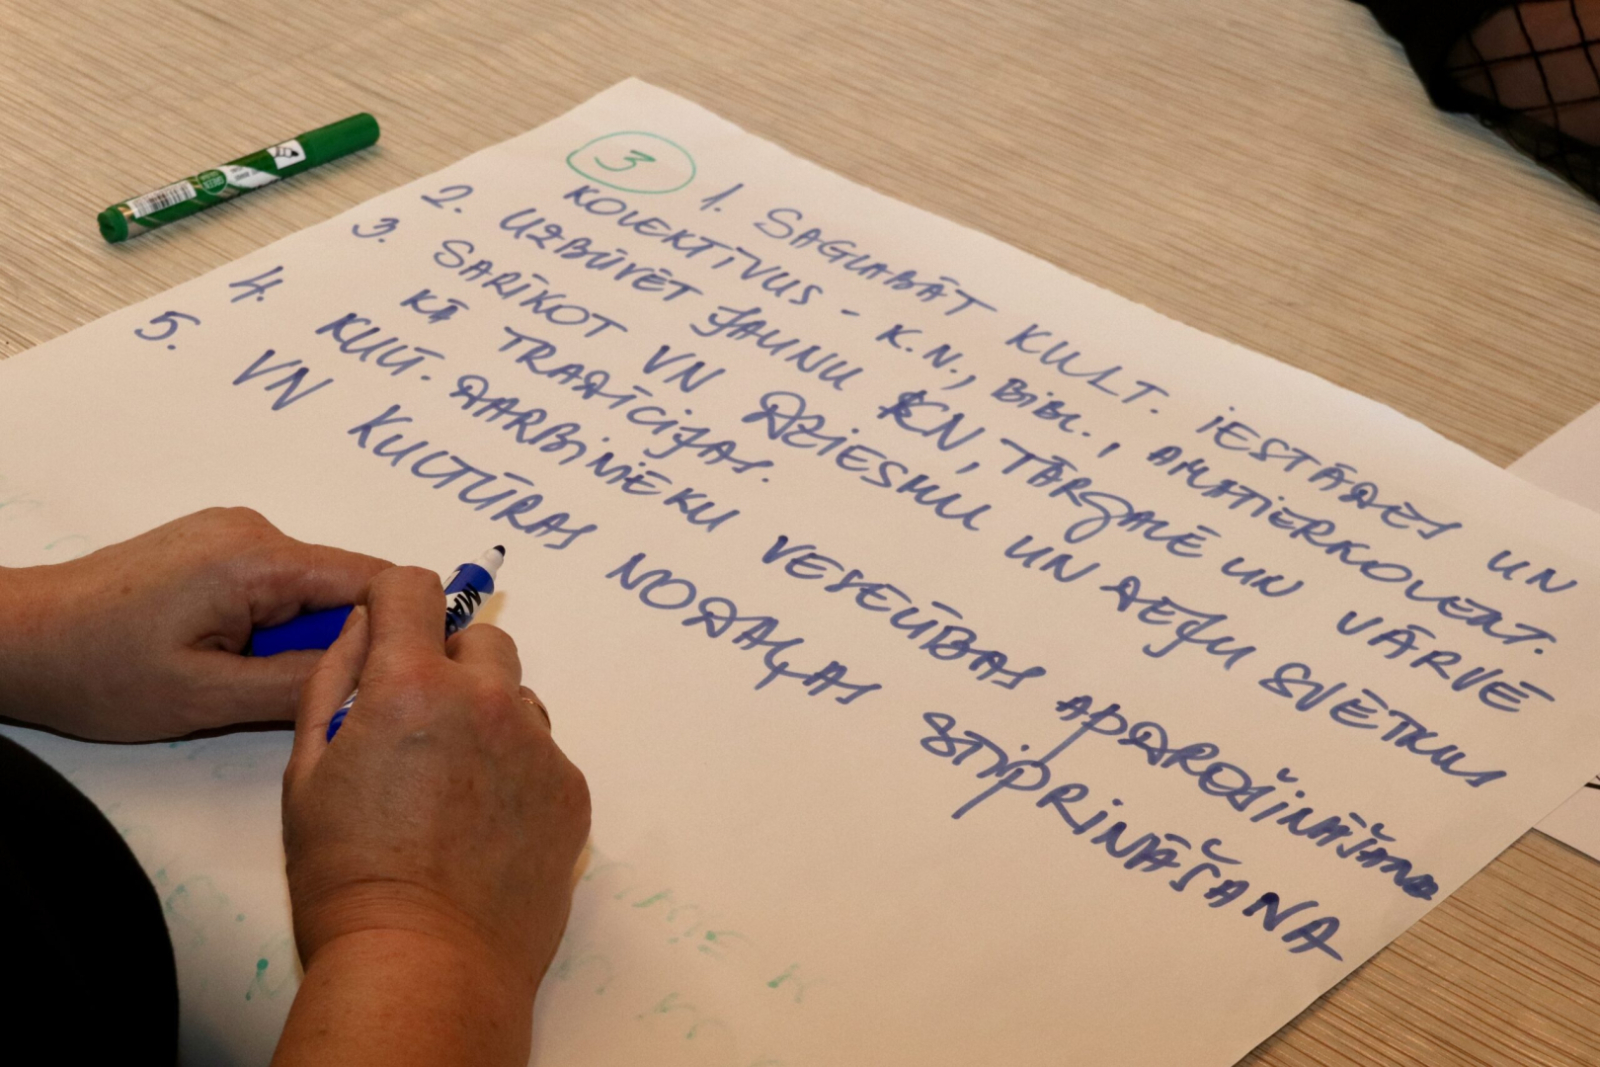 3
1. SAGLABĀT KULT. IESTĀDES UN
KOLEKTĪVUS - K.N., BIBL., AMATIERKOLEKT.
2. UZBŪVĒT JAUNU KN, TĀRGALĒ UN VĀRVĒ
3. SARĪKOT VN DZIESMU UN DEJU SVĒTKUS
KĀ TRADĪCIJAS.
4. KULT. DARBINIEKU VESELĪBAS APDROŠINĀŠANA
5. VN KULTŪRAS NODAĻAS STIPRINĀŠANA